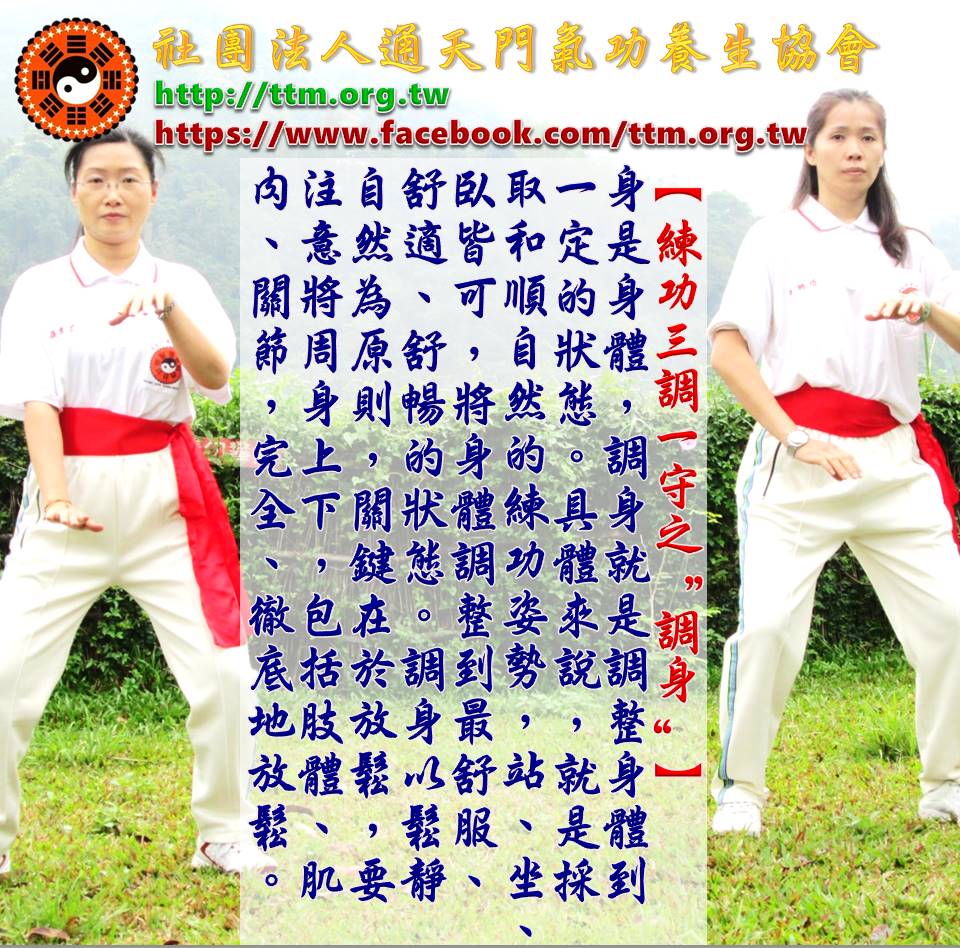 社團法人通天門氣功養生協會
http://ttm.org.tw
https://www.facebook.com/ttm.org.tw
【練功三調一守之”調身“】
身是身體，調身就是調整身體到
一定的狀態。具體來說，就是採
取和順自然的練功姿勢，站、坐、
臥皆可，將身體調整到最舒服、
舒適、舒暢的狀態。調身以鬆靜
自然為原則，關鍵在於放鬆，要
注意將周身上下，包括肢體、肌
肉、關節，完全、徹底地放鬆。